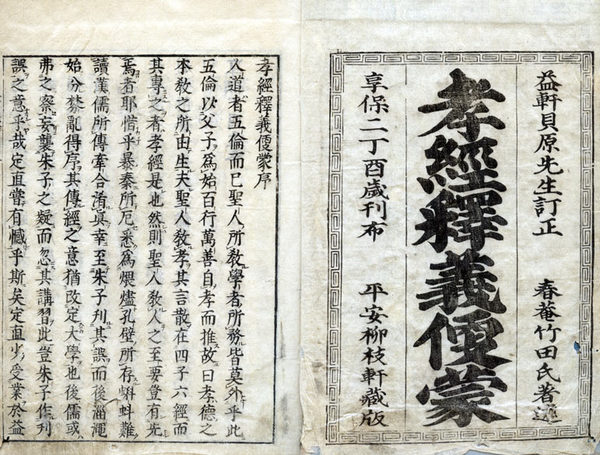 益軒貝原先生訂正　春菴竹田氏著述
孝經釋義便蒙
享保二丁酉歲刊布　平安柳枝軒藏版
孝經釋義便蒙序
人道者五倫而已聖人所教學者所務皆莫外乎此
五倫以父子爲始百行萬善自孝而推故曰孝德之
本教之所由生夫聖人教孝其言散在四子六經而
其專之者孝經是也然則聖人教人之至要豈有先
焉者耶惜乎暴秦所厄悉爲煨燼孔壁所存蝌蚪難
讀漢儒所傳牽合淆眞幸至朱子刋其誤而後湮淹
始分棼亂得序其傳經之意猶改定大學也後儒或
弗之察妄襲朱子之疑而忽其講習此豈朱子作刋
誤之意乎哉定直嘗有憾乎斯矣定直少受業於益